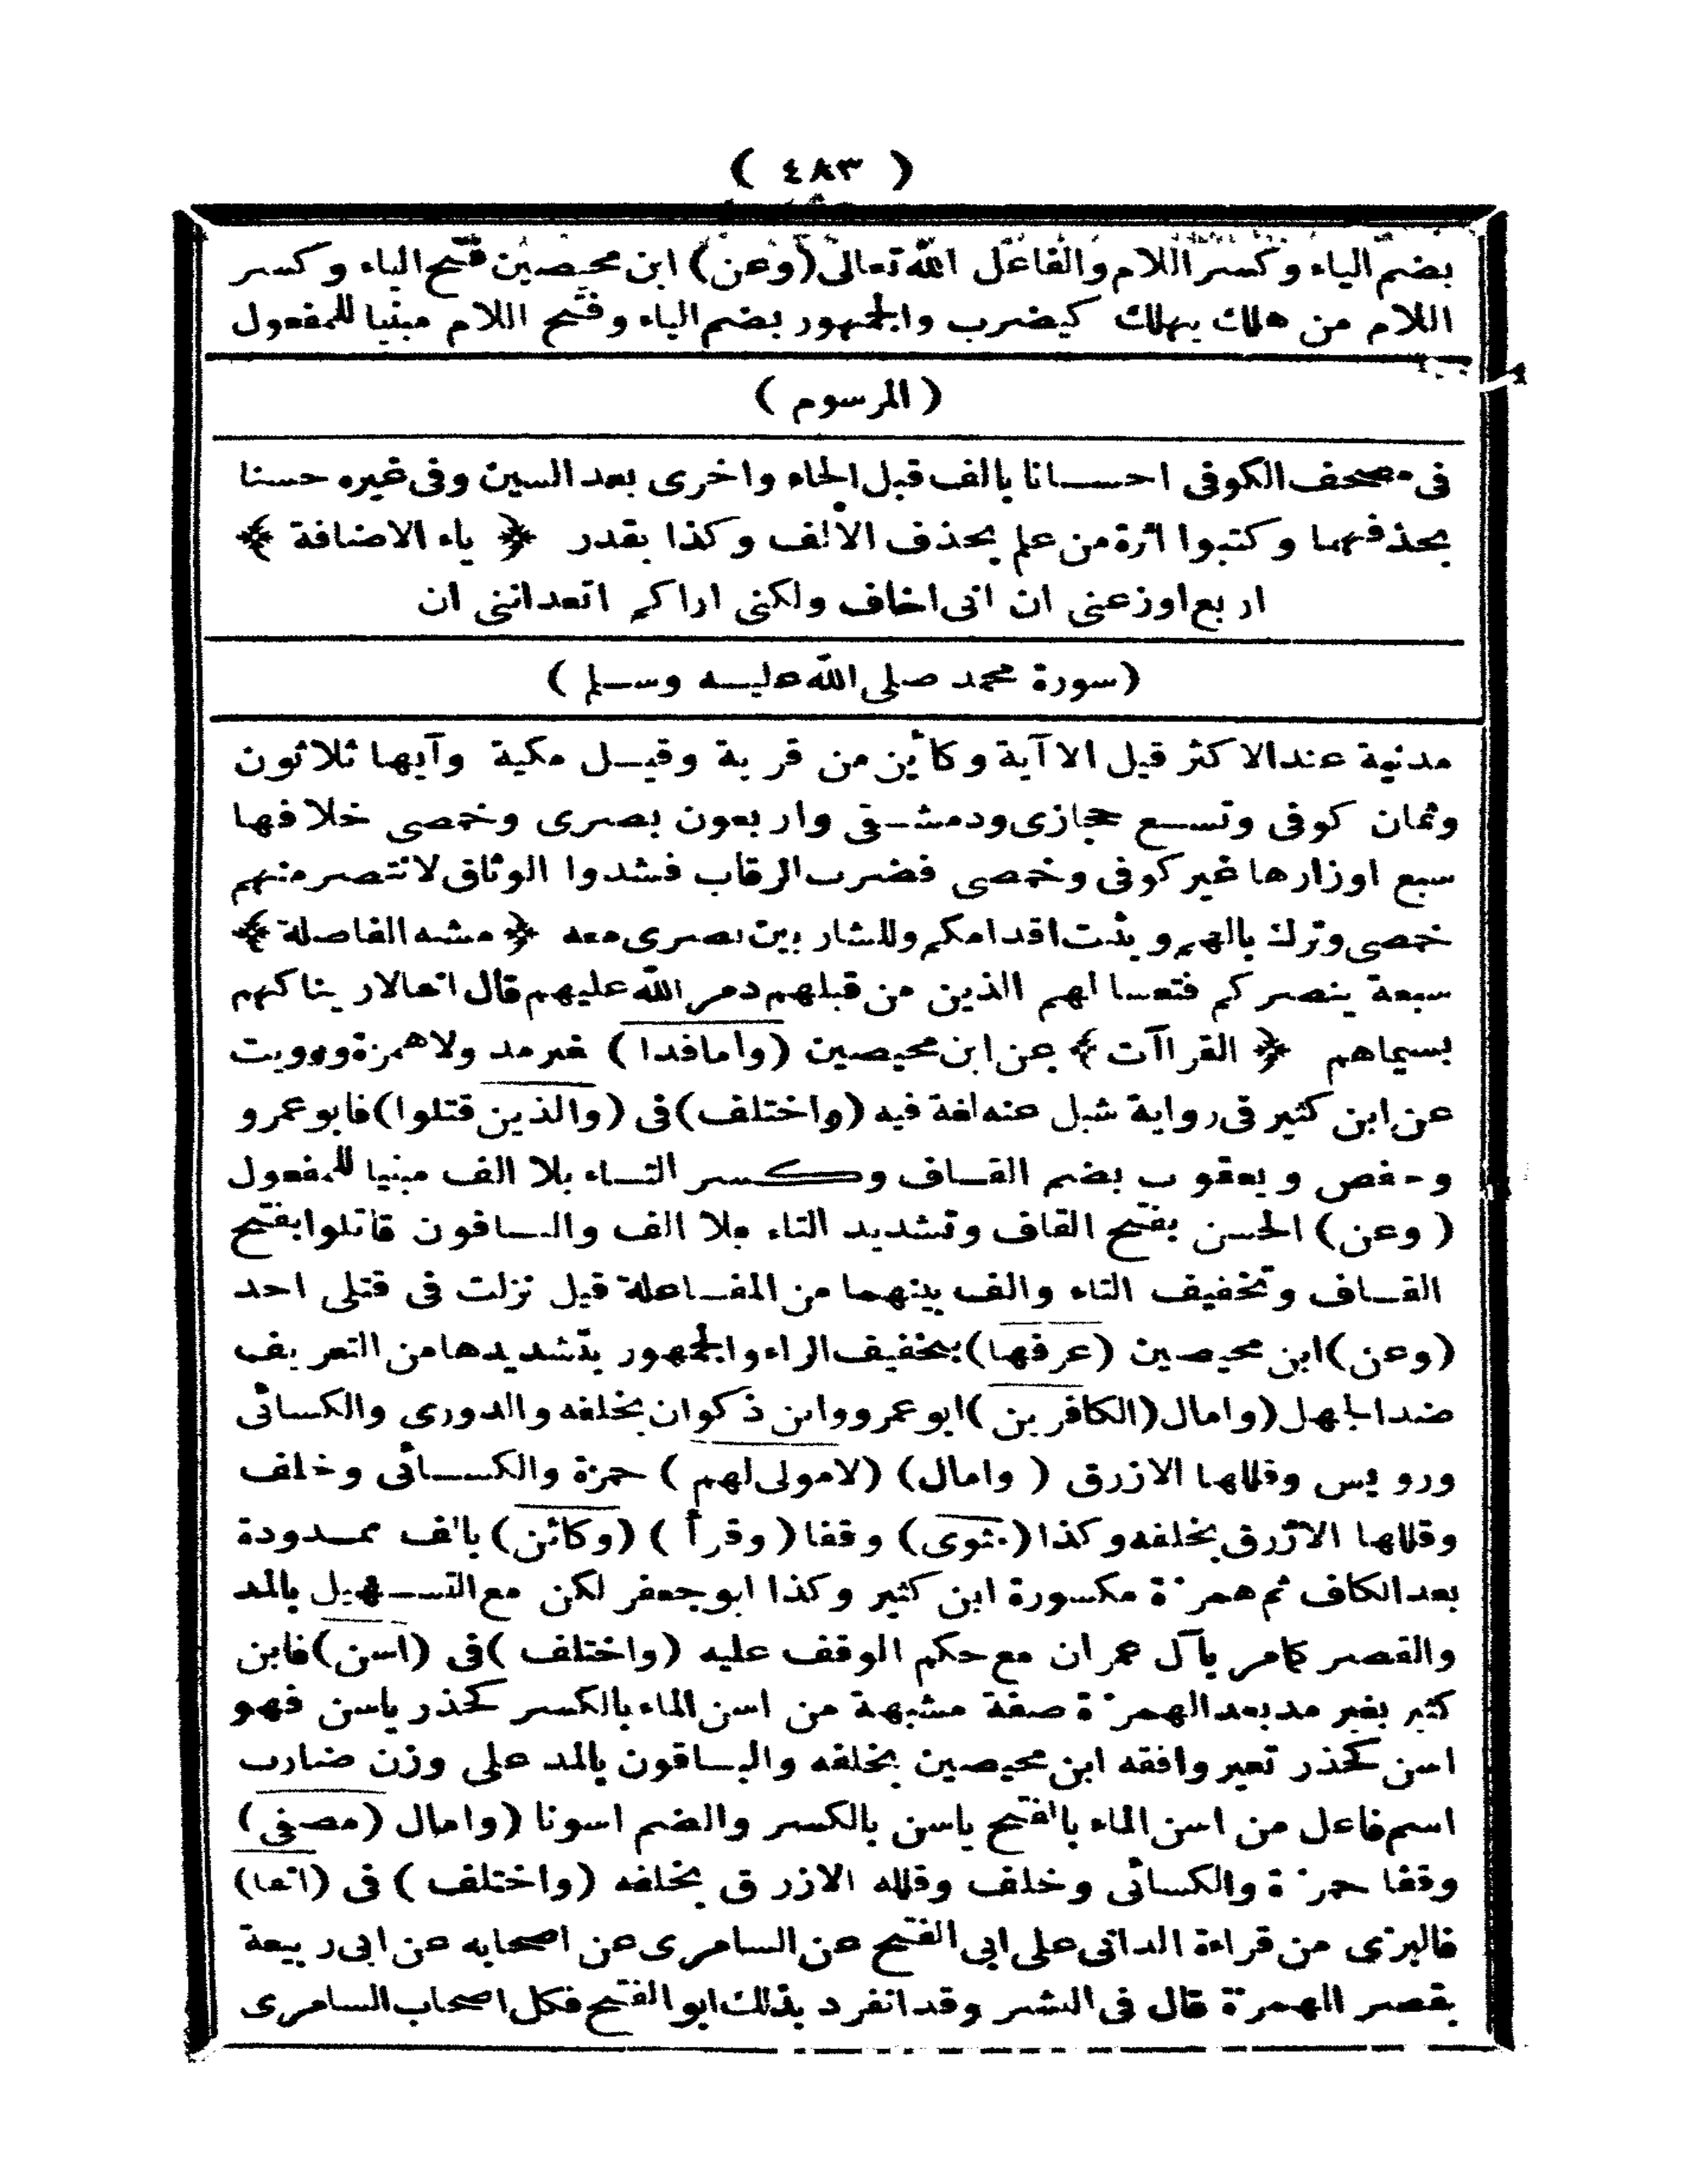 ( ٤٨٣ )
بضم الياء وكسر اللام والفاعل الله تعالى (وعن) ابن محيصين فتح الياء وكسر
اللام من هلك يهلك كيضرب والجمهور بضم الياء وفتح اللام مبنيا للمفعول
( المرسوم )
فى مصحف الكوفى احسانا بالف قبل الحاء واخرى بعد السين وفى غيره حسنا
بحذفهما وكتبوا اثرة من علم بحذف الالف وكذا بقدر ﴿ ياء الاضافة ﴾
اربع اوزعنى ان انى اخاف ولكنى اراكم اتعداننى ان
(سورة محمد صلى الله عليه وسلم )
مدنية عند الاكثر قيل الا آية وكأين من قرية وقيل مكية وآيها ثلاثون
وثمان كوفى وتسع حجازى ودمشقى واربعون بصرى وخمصى خلافها
سبع اوزارها غير كوفى وخمصى فضرب الرقاب فشدوا الوثاق لانتصر منهم
خمصى وترك بالهم ويثبت اقدامكم وللشاربين بصرى معه ﴿ مشبه الفاصلة ﴾
سبعة ينصركم فتعسا لهم الذين من قبلهم دمر الله عليهم قال انفا لاريناكهم
بسيماهم ﴿ القراآت ﴾ عن ابن محيصين (وامافدا) غير مد ولا همزة ورويت
عن ابن كثير فى رواية شبل عنه لغة فيه (واختلف) فى (والذين قتلوا) فابو عمرو
وحفص ويعقوب بضم القاف وكسر التاء بلا الف مبنيا للمفعول
( وعن) الحسن بفتح القاف وتشديد التاء بلا الف والباقون قاتلوا بفتح
القاف وتخفيف التاء والف بينهما من المفاعلة قيل نزلت فى قتلى احد
(وعن) ابن محيصين (عرفها) بتخفيف الراء والجمهور بتشديدها من التعريف
ضد الجهل (وامال (الكافرين) ابو عمرو وابن ذكوان بخلفه والدورى والكسائى
ورويس وقللها الازرق ( وامال) (لامولى لهم ) حمزة والكسائى وخلف
وقللها الازرق بخلفه وكذا (مثوى) وقفا (وقرأ ) (وكائن) بالف ممدودة
بعد الكاف ثم همزة مكسورة ابن كثير وكذا ابو جعفر لكن مع التسهيل بالمد
والقصر كامر بآل عمران مع حكم الوقف عليه (واختلف )فى (اسن) فابن
كثير بغير مد بعد الهمزة صفة مشبهة من اسن الماء بالكسر كحذر ياسن فهو
اسن كحذر تغير وافقه ابن محيصين بخلفه والباقون بالمد على وزن ضارب
اسم فاعل من اسن الماء بالفتح ياسن بالكسر والضم اسونا (وامال (مصفى)
وقفا حمزة والكسائى وخلف وقلله الازرق بخلفه (واختلف ) فى (انفا)
فالبزى من قراءة الدانى على ابى الفتح عن السامرى عن اصحابه عن ابى ربيعة
بقصر الهمزة قال فى النشر وقد انفرد بذلك ابو الفتح فكل اصحاب السامرى